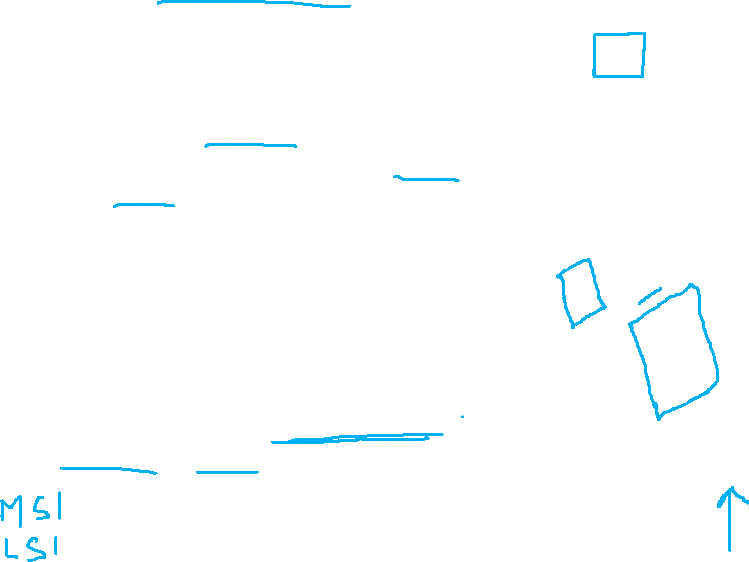 MSI
LSI